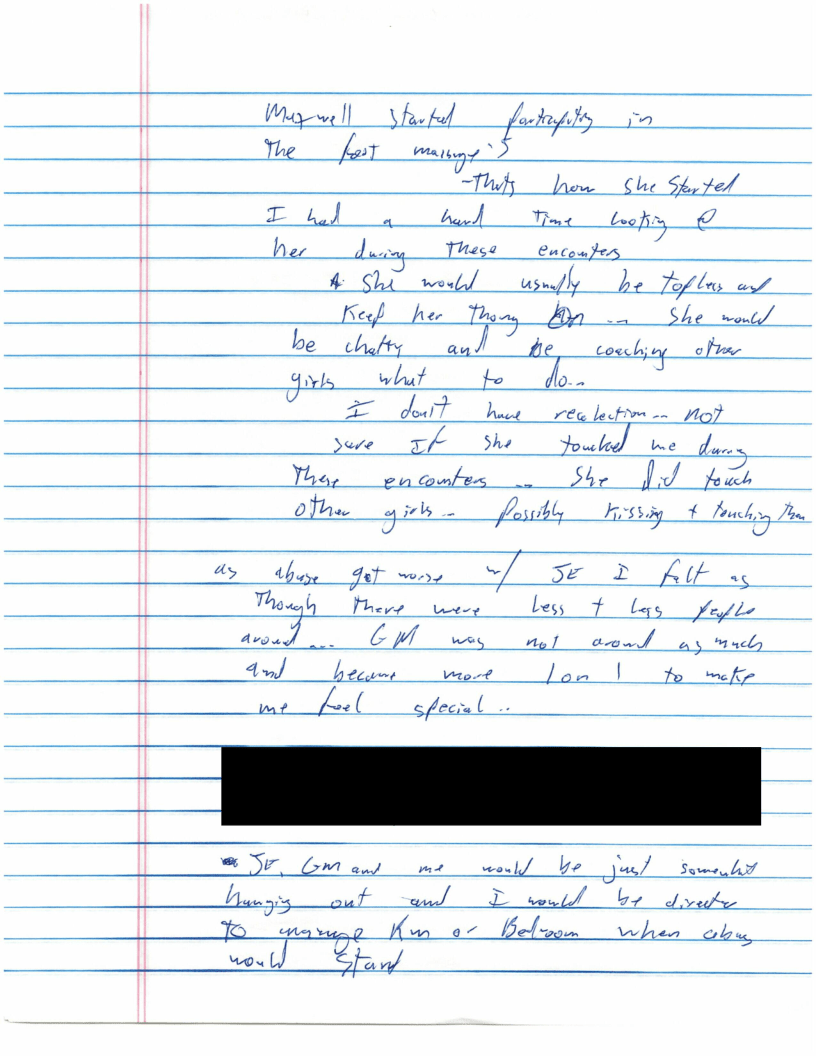 Maxwell started participating in
the foot massage's
-Thats how she started
I had a hard time looking @
her during these encounters
She would usually be topless and
keep her thong on -- she would
be chatty and be coaching other
girls what to do--
I don't have recolection -- not
sure If she touched me during
These encounters -- She did touch
other girls - Possibly kissing + touching them
as abuse got worse w/ JE I felt as
Though there were less + less people
around --- GM was not around as much
and became more 1 on 1 to make
me feel special ..
JE, GM and me would be just somewhat
hanging out and I would be directed
to massage Rm or Bedroom when abuse
would start